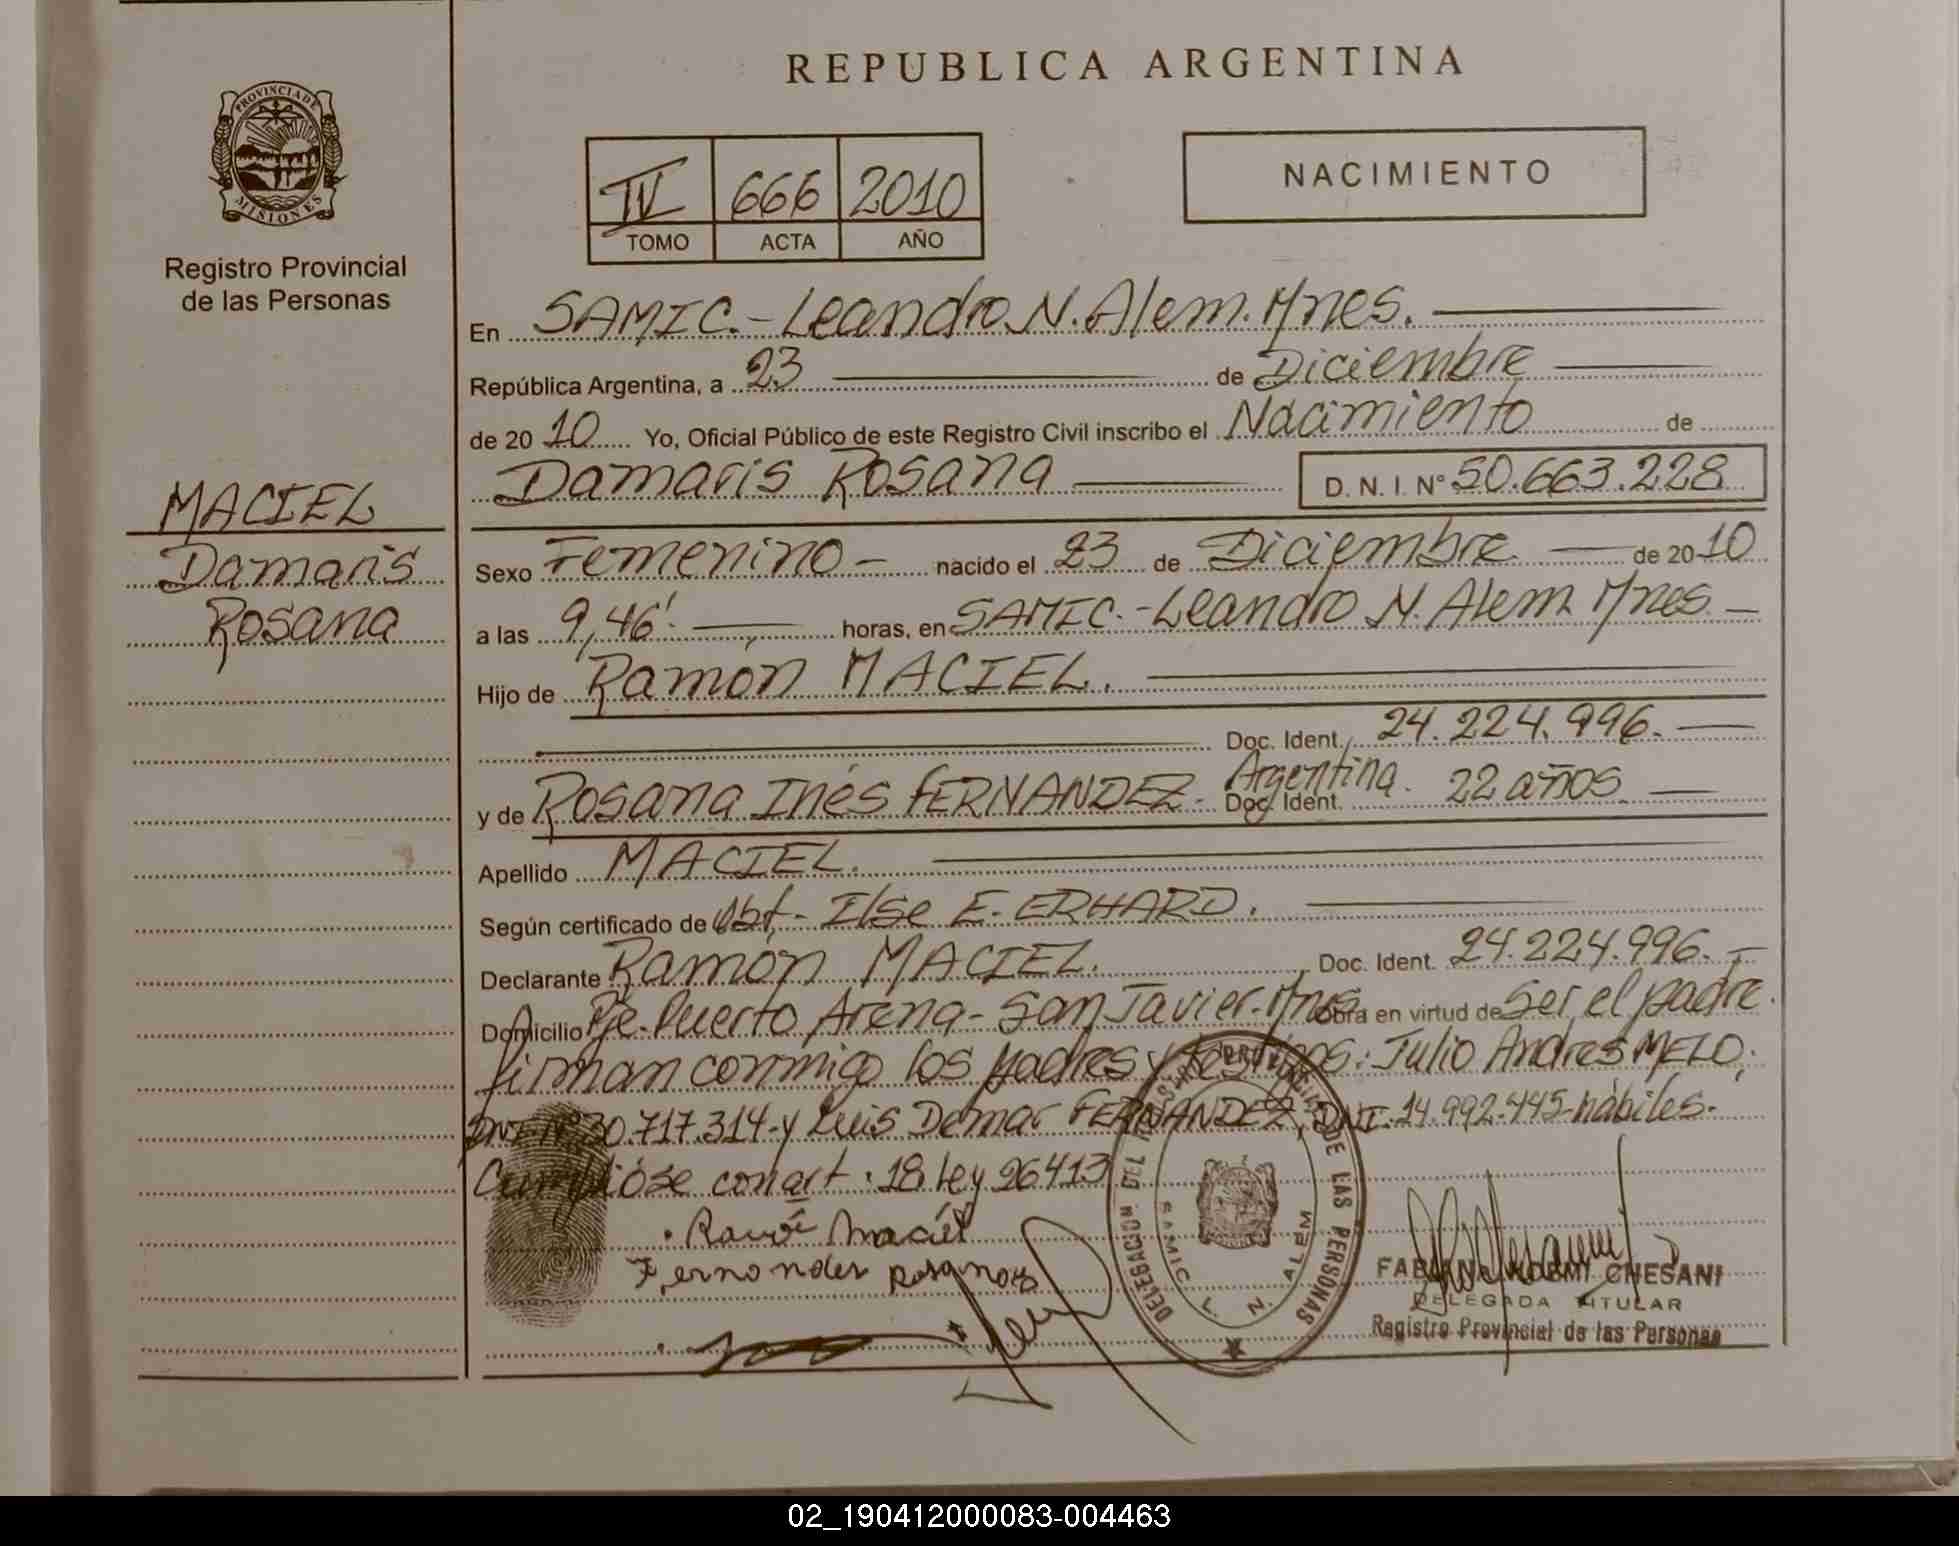 REPUBLICA ARGENTINA
PROVINCIA DE
MISIONES
Registro Provincial
de las Personas
IV 666 2010
TOMO ACTA AÑO
NACIMIENTO
En SAMIC.-Leandro N. Alem. Mnes.
República Argentina, a 23 de Diciembre
de 2010 Yo, Oficial Público de este Registro Civil inscribo el Nacimiento de
Damaris Rosana D. N. I. Nº 50.663.228
MACIEL
Damaris
Rosana
Sexo Femenino - nacido el 23 de Diciembre de 2010
a las 9,46'. horas, en SAMIC.-Leandro N. Alem Mnes
Hijo de Ramón MACIEL.
Doc. Ident. 24.224.996.
Argentina. 22 años
y de Rosana Inés FERNANDEZ- Doc. Ident.
Apellido MACIEL.
Según certificado de Obst,- Ilse E. ERHARD.
Declarante Ramón MACIEL. Doc. Ident. 24.224.996.-
Domicilio Pje. Puerto Arena- San Javier. Mnes Obra en virtud de Ser el padre.
firman conmigo los padres y testigos: Julio Andres MELO,
DNI Nº 30.717.314-y Luis Demar FERNANDEZ, DNI. 14.992.445-hábiles.
Cumplióse con art. 18 Ley 26413
Ramón Maciel
Fernandez Rosana
DELEGACION DEL REGISTRO PROVINCIAL DE LAS PERSONAS
SAMIC L. N. ALEM
FABIANA NOEMI CHESANI
DELEGADA TITULAR
Registro Provincial de las Personas
02_190412000083-004463